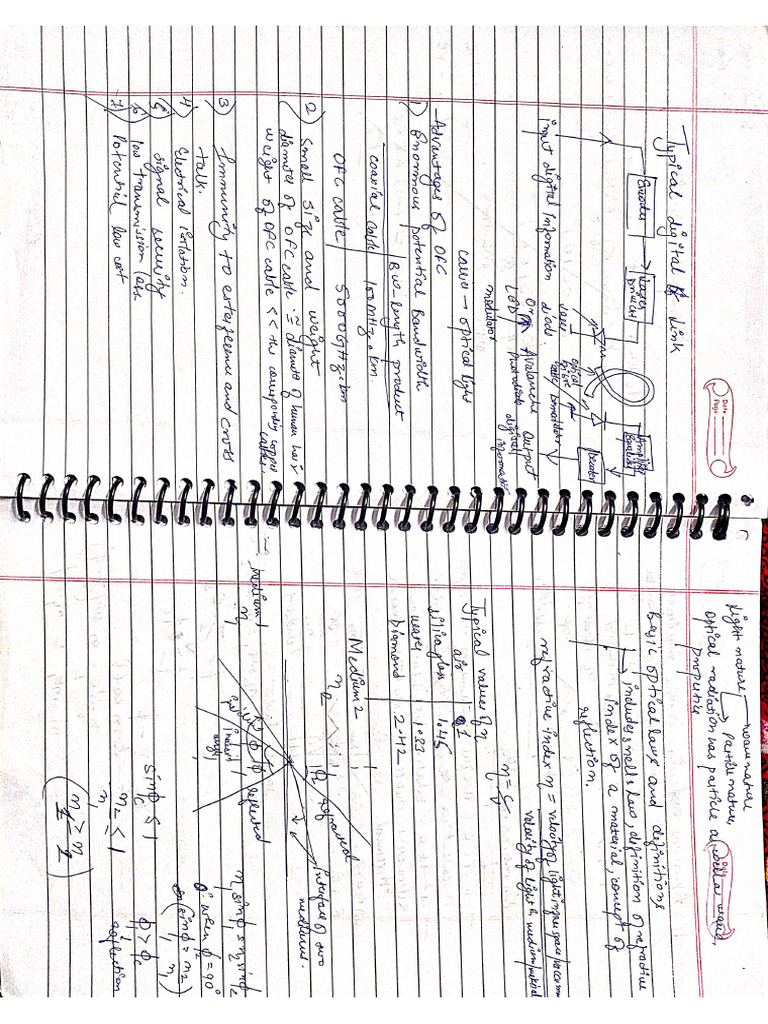 Typical digital of link
Encoder
Decoder
input digital information
laser
diode.
optical
fibre
cable
Avalanche
Photodiode
Output
digital
information
modulator
carrier → optical light
Advantages of OFC
1) Enormous potential Bandwidth
Bw-length product
coaxial cable 100MHz.km.
OFC cable 5000GHz.km
2) Small size and weight
diameter of OFC cable ≅ diameter of human hair
weight of OFC cable << the corresponding copper
cable.
3) Immunity to interference and cross
talk.
4) Electrical isolation.
5) signal security
6) low transmission loss
7) Potential low cost
Light nature → wave nature
→ Particle nature,
optical radiation has particle as well as wave
propertie
Basic optical laws and definitions
→ includes snell's law, definition of refractive
index of a material, concept of
reflection.
refractive index η = velocity of light in free space/vacuum
velocity of light in medium/material
η = c/v
Typical values of η
air 1
silica glass 1.45
water 1.33
Diamond 2.42
Medium 2
η2
φ2 refracted
Interface of two
mediums.
Medium 1
η1
φ1 φ1
reflected
incident
angle
η1 sinφ1 = η2 sinφ2
φc when φ2 = 90°
(sinφc = η2/η1)
sinφc ≤ 1
η2/η1 ≤ 1
φ1 > φc
reflection
(η1 ≥ η2)